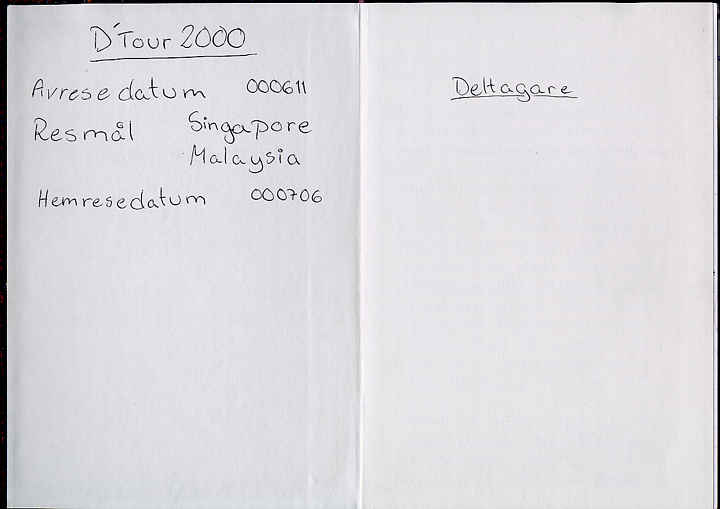 D'Tour 2000
Avresedatum 000611
Resmål Singapore
Malaysia
Hemresedatum 000706
Deltagare